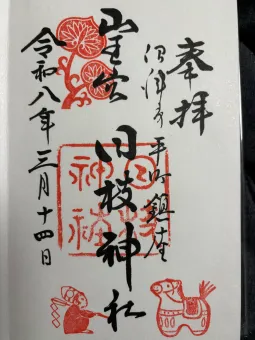 奉拝
沼津市平町鎮座
山王宮 日枝神社
日枝神社
令和八年三月十四日